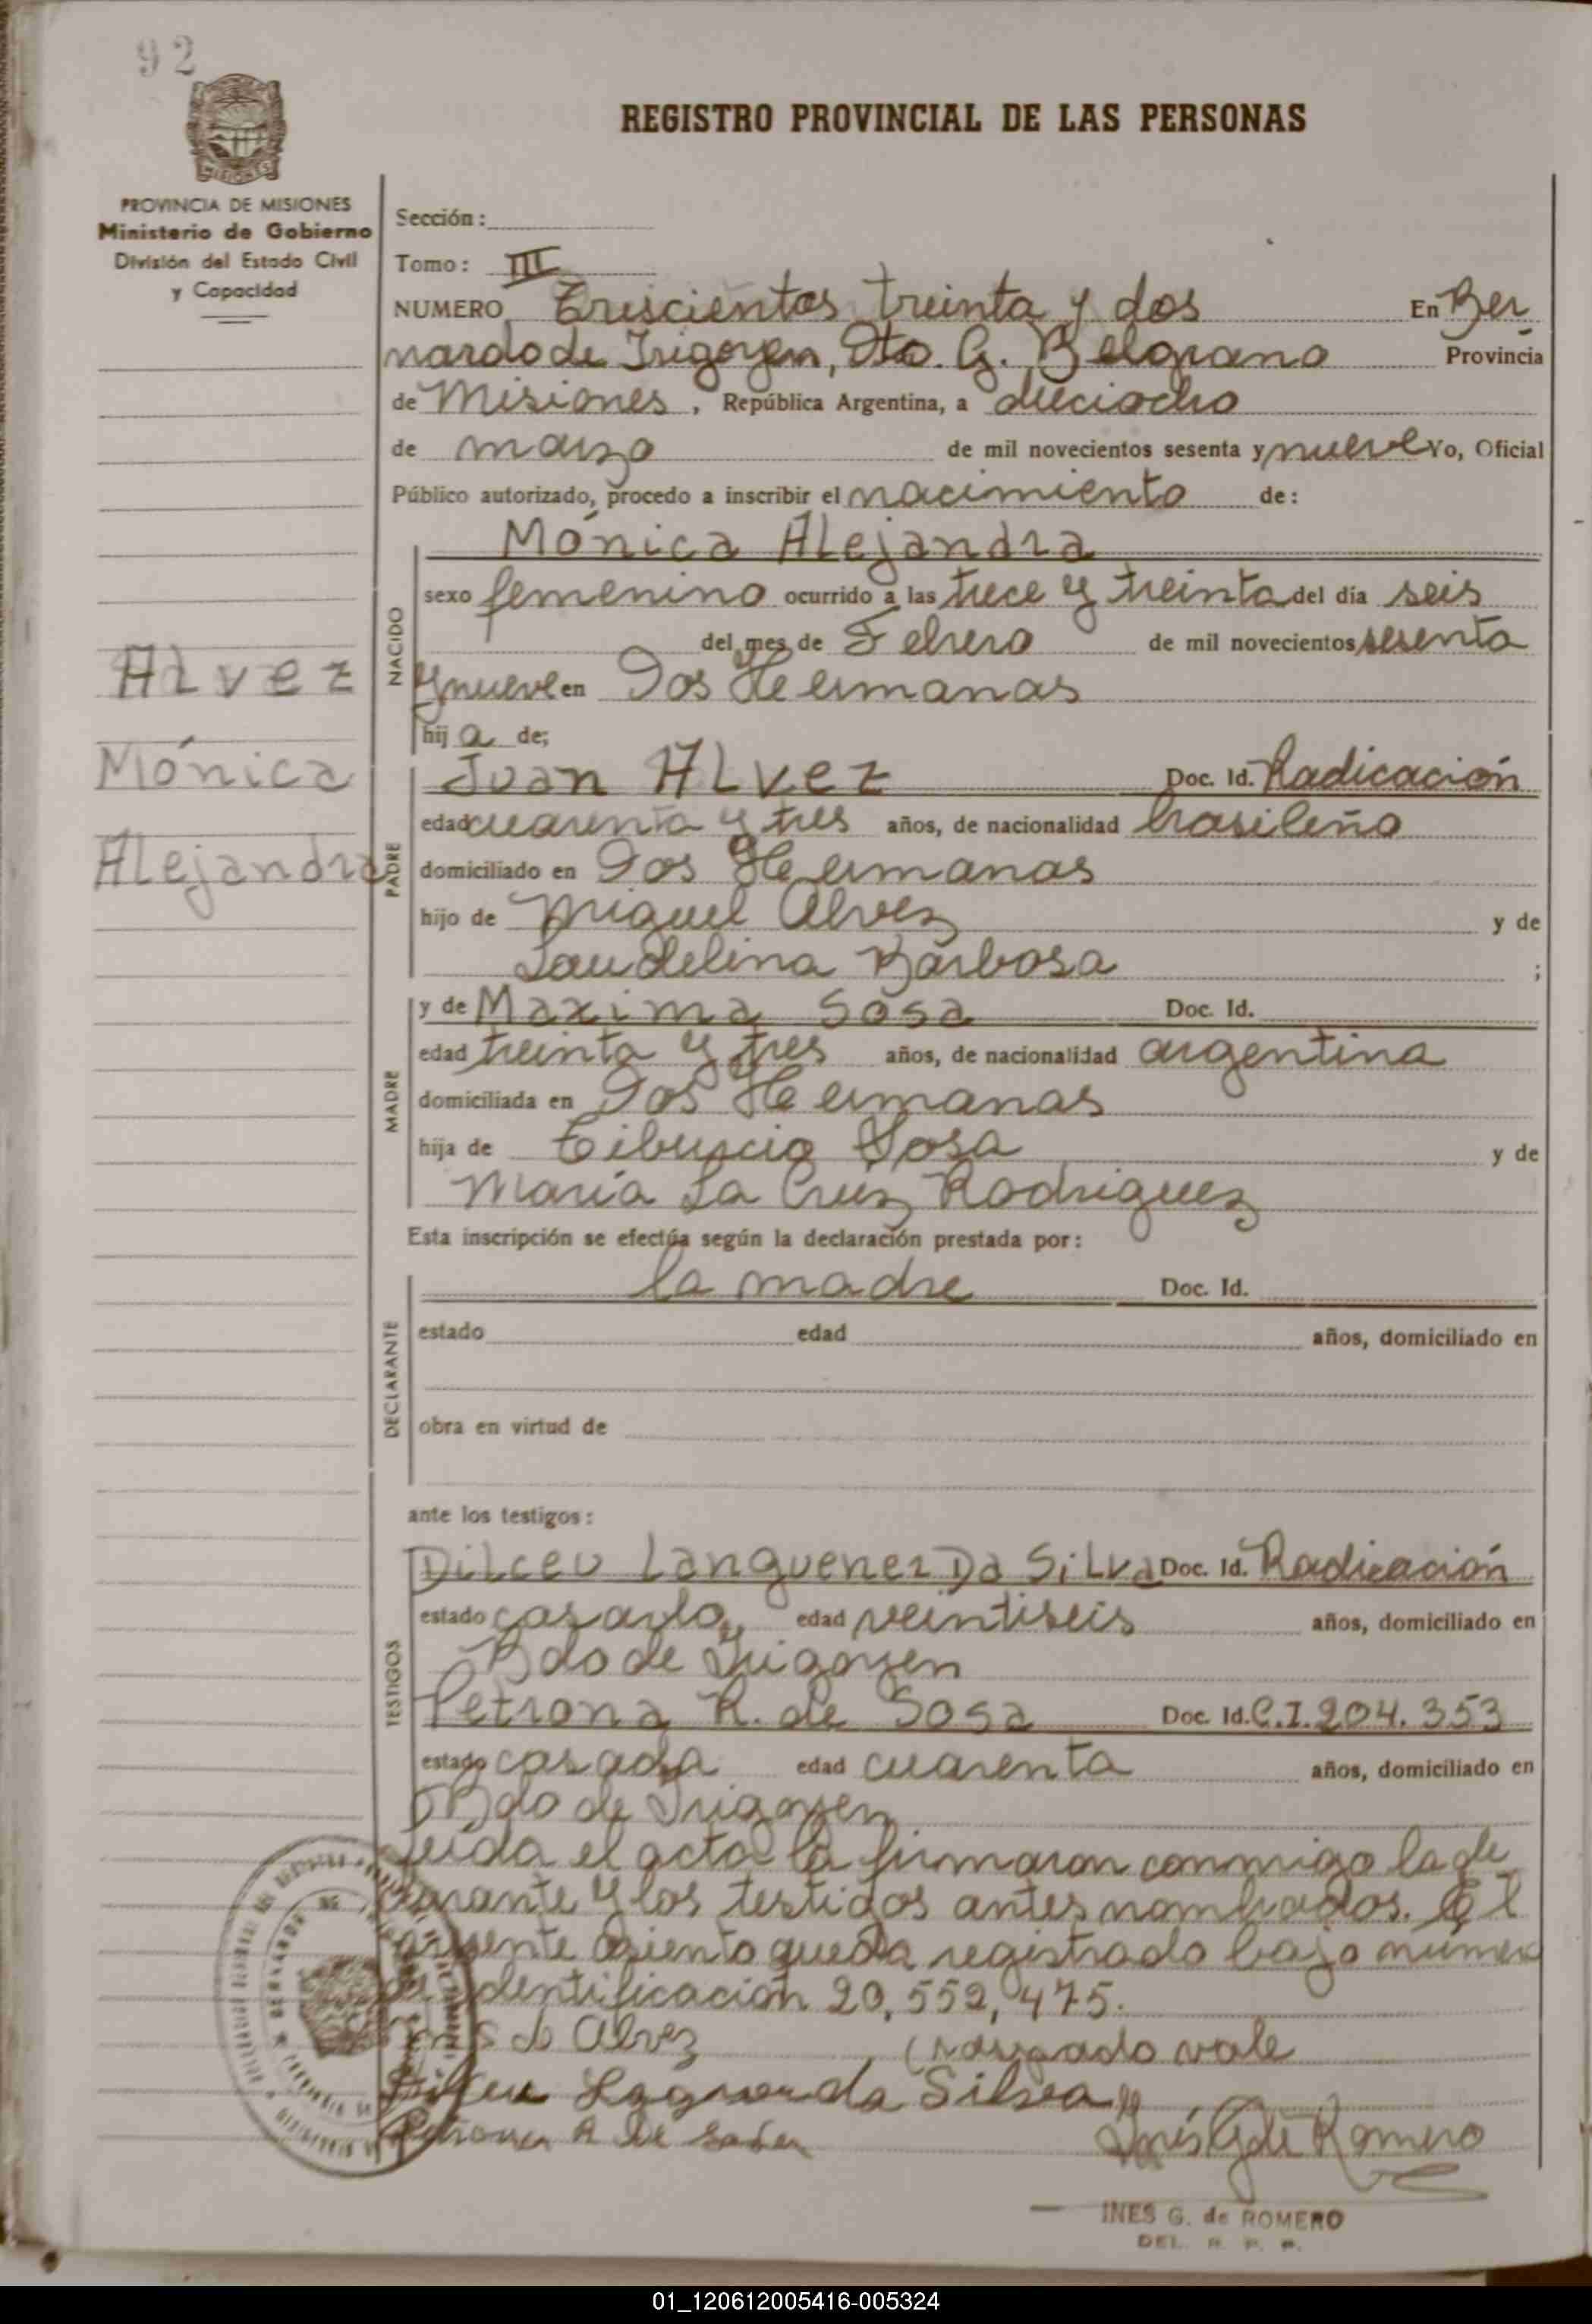 92
REGISTRO PROVINCIAL DE LAS PERSONAS
MISIONES
PROVINCIA DE MISIONES
Ministerio de Gobierno
División del Estado Civil
y Capacidad
Sección:
Tomo: III
NUMERO Trescientos treinta y dos En Ber
nardo de Irigoyen, Dto. G. Belgrano Provincia
de Misiones, República Argentina, a dieciocho
de marzo de mil novecientos sesenta y nueve Yo, Oficial
Público autorizado, procedo a inscribir el nacimiento de:
Mónica Alejandra
NACIDO
sexo femenino ocurrido a las trece y treinta del día seis
del mes de Febrero de mil novecientos sesenta
y nueve en Dos Hermanas
hija de;
Alvez
Mónica
Alejandra
PADRE
Juan Alvez Doc. Id. Radicación
edad cuarenta y tres años, de nacionalidad brasileño
domiciliado en Dos Hermanas
hijo de Miguel Alvez y de
Laudelina Barbosa ;
MADRE
y de Maxima Sosa Doc. Id.
edad treinta y tres años, de nacionalidad argentina
domiciliada en Dos Hermanas
hija de Tiburcio Sosa y de
María La Cruz Rodriguez
Esta inscripción se efectúa según la declaración prestada por:
DECLARANTE
la madre Doc. Id.
estado edad años, domiciliado en
obra en virtud de
ante los testigos:
TESTIGOS
Dilceu Languener Da Silva Doc. Id. Radicación
estado casado edad veintiseis años, domiciliado en
Bdo de Irigoyen
Petrona R. de Sosa Doc. Id. C.I. 204.353
estado casada edad cuarenta años, domiciliado en
Bdo de Irigoyen
Leída el acta la firmaron conmigo la de
clarante y los testigos antes nombrados. El
presente asiento queda registrado bajo número
de identificación 20,552,475.
S de Alvez
raspado vale
da Silva
Petrona R de Sosa
Inés G de Romero
INES G. de ROMERO
DEL. R. P. P.
01_120612005416-005324